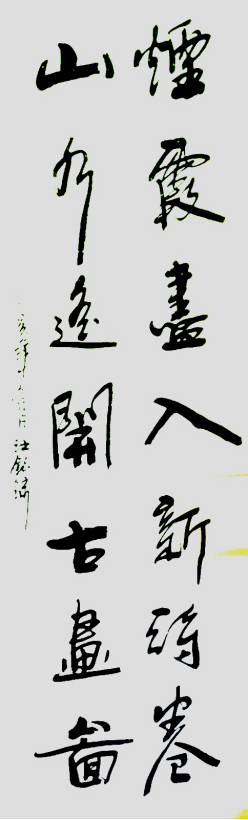 煙霞盡入新詩卷
山外遙開古畫圖